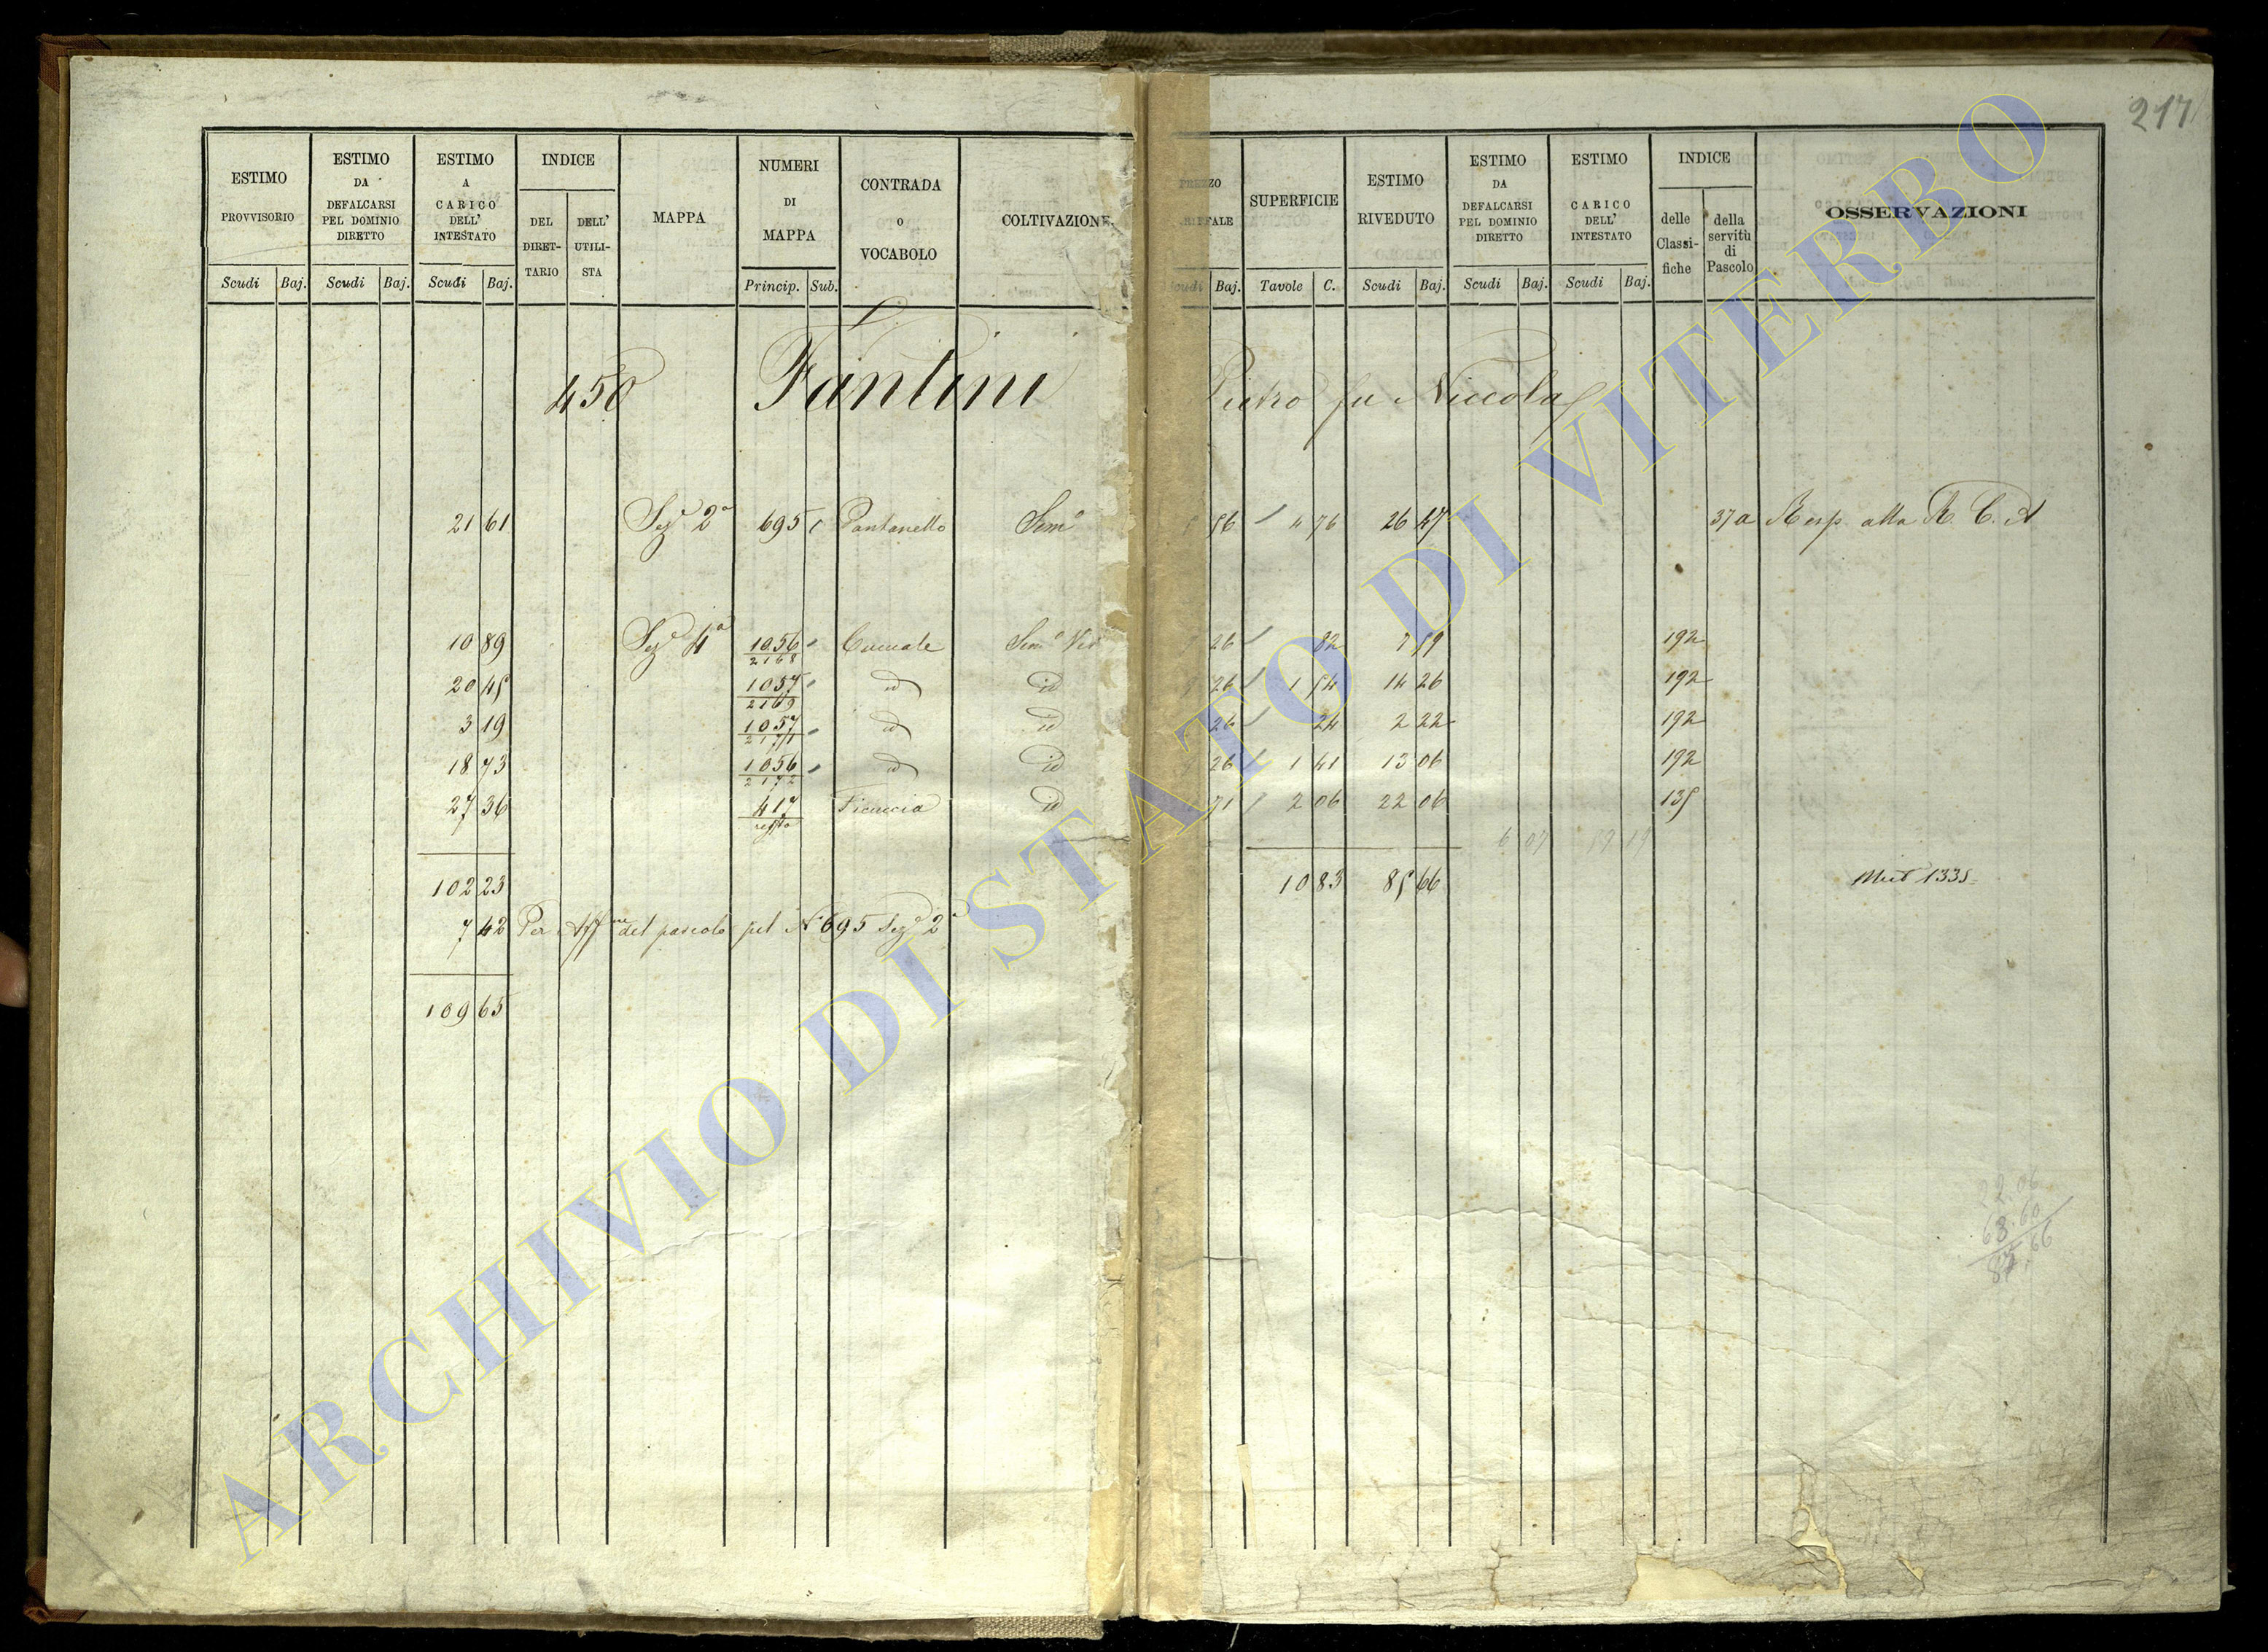 217
ESTIMO PROVVISORIO Scudi Baj.
ESTIMO DA DEFALCARSI PEL DOMINIO DIRETTO Scudi Baj.
ESTIMO A CARICO DELL' INTESTATO Scudi Baj.
INDICE DEL DIRETTARIO DELL' UTILISTA
MAPPA
NUMERI DI MAPPA Princip. Sub.
CONTRADA O VOCABOLO
COLTIVAZIONE
SUPERFICIE Tavole C.
ESTIMO RIVEDUTO Scudi Baj.
ESTIMO DA DEFALCARSI PEL DOMINIO DIRETTO Scudi Baj.
ESTIMO A CARICO DELL' INTESTATO Scudi Baj.
INDICE delle Classifiche della servitù di Pascolo
OSSERVAZIONI
450 Fantini Pietro fu Niccola
21 61 Sez.e 2a 695 Pantanello Sem.o 56 4 76 26 47 37 a Resp. alla R. C. A
10 89 Sez.e 4a 1056/2168 Cucuale Sem.o Vit 26 82 7 59 192
20 45 1057/2169 id id 26 1 54 14 26 192
3 19 1057/2171 id id 26 24 2 22 192
18 73 1056/2172 id id 26 1 41 13 06 192
27 36 417/resto Ficuccia id 71 2 06 22 06 135
6 07 59 19
102 23 10 83 85 66 1335
7 42 Per Aff.ne del pascolo pel N. 695 Sez.e 2a
109 65
22.06
63.60
85.66
ARCHIVIO DI STATO DI VITERBO